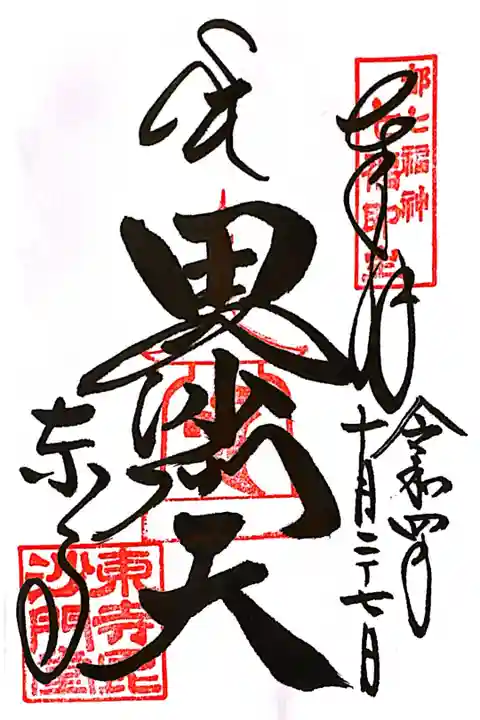 奉拝
都七福神
令和四年
十月二十七日
毘沙門天
東寺
東寺毘
沙門堂